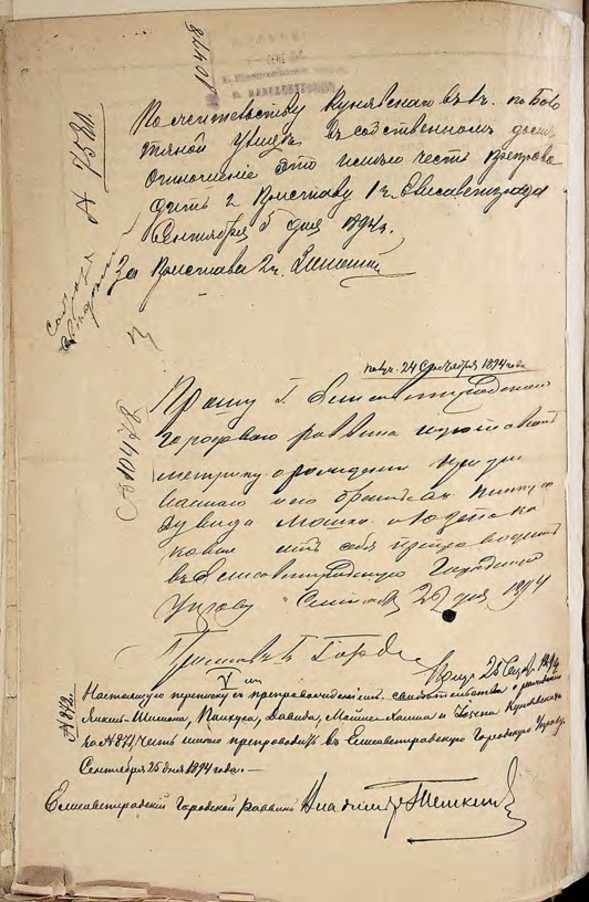 10478
А 7581
По жительству Кунявскаго въ 1 ч. по Боло
тяной улицѣ, въ собственномъ домѣ
отношеніе это имѣю честь препрово
дить г. Приставу 1 ч. Елисаветграда
Сентября 5 дня 1894 г.
За Пристава 2 ч.
получ. 24 Сентября 1894 года
№ 10478
Прошу Г. Елисаветградскаго
городового раввина изготовить
метрику о рожденіи
Давида Мошко
себя препроводить
въ Елисаветградскую Городскую
Управу Сентября 25 дня 1894
Приставъ
Получ. 25 Сент. 1894
№ 872.
Настоящую переписку съ препровожденіемъ свидѣтельства о рожденіи
Янкель-Шимона, Пинхуса, Давида, Мойше-Хаима и Іосепа Кунявскихъ
за № 872, честь имѣю препроводить въ Елисаветградскую Городскую Управу.
Сентября 25 дня 1894 года.—
Елисаветградскій Городской раввинъ Владиміръ Темкинъ